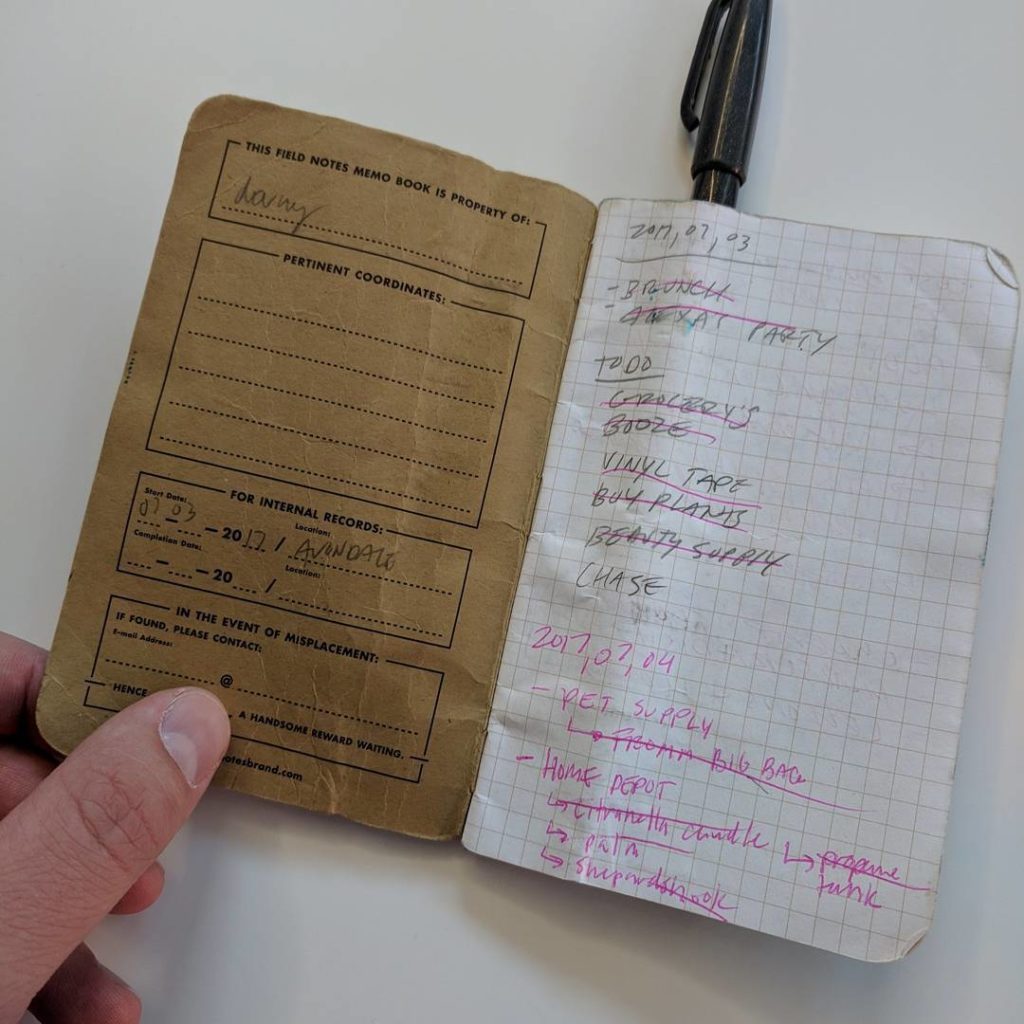 THIS FIELD NOTES MEMO BOOK IS PROPERTY OF:
PERTINENT COORDINATES:
FOR INTERNAL RECORDS:
Start Date:
Location:
07-03-2017 / AVONDALE
Completion Date:
Location:
-20 /
IN THE EVENT OF MISPLACEMENT:
IF FOUND, PLEASE CONTACT:
E-mail Address:
@
HENCE
A HANDSOME REWARD WAITING.
otesbrand.com
2017,07,03
- BRUNCH
- ALEXA'S PARTY
TODO
GROCZERY'S
BOOZE
VINYL TAPE
BUY PLANTS
BEAUTY SUPPLY
CHASE
2017,07,04
- PET SUPPLY
FROMM BIG BAG
- HOME DEPOT
citronella candle
propane
tank
palm
shepards hook